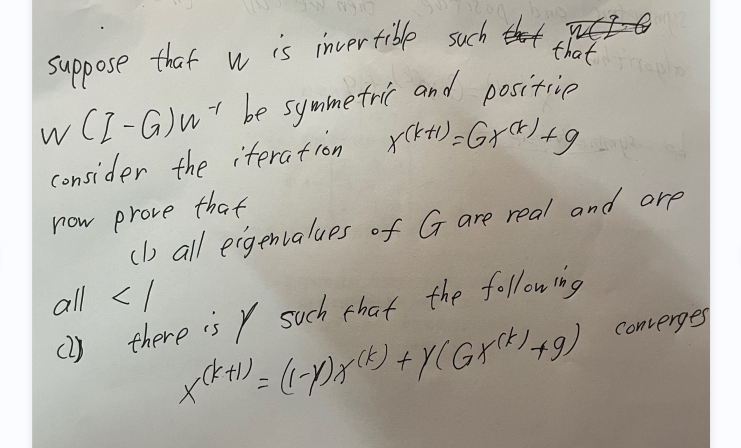 suppose that w is invertible such that
w(I-G)w⁻¹ be symmetric and positive
consider the iteration x^(k+1)=Gx^(k)+g
now prove that
(1) all eigenvalues of G are real and are
all <1
(2) there is γ such that the following
x^(k+1)=(1-γ)x^(k)+γ(Gx^(k)+g) converges